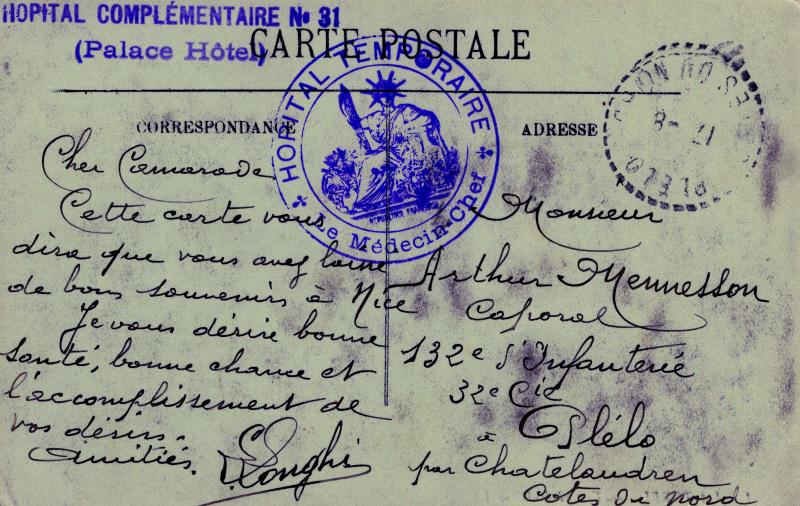 HOPITAL COMPLÉMENTAIRE No 31
(Palace Hôtel)
CARTE POSTALE
HOPITAL TEMPORAIRE
Le Médecin-Chef
RÉPUBLIQUE FRANÇAISE
CORRESPONDANCE
Cher Camarade
Cette carte vous
dira que vous avez laissé
de bons souvenirs à Nice
Je vous désire bonne
santé, bonne chance et
l'accomplissement de
vos désirs.
Amitiés.
Longhi
ADRESSE
17 - 8
PLELO
COTES DU NORD
Monsieur
Arthur Mennesson
Caporal
132e d'Infanterie
32e Cie
à Plélo
par Chatelaudren
Cotes du nord